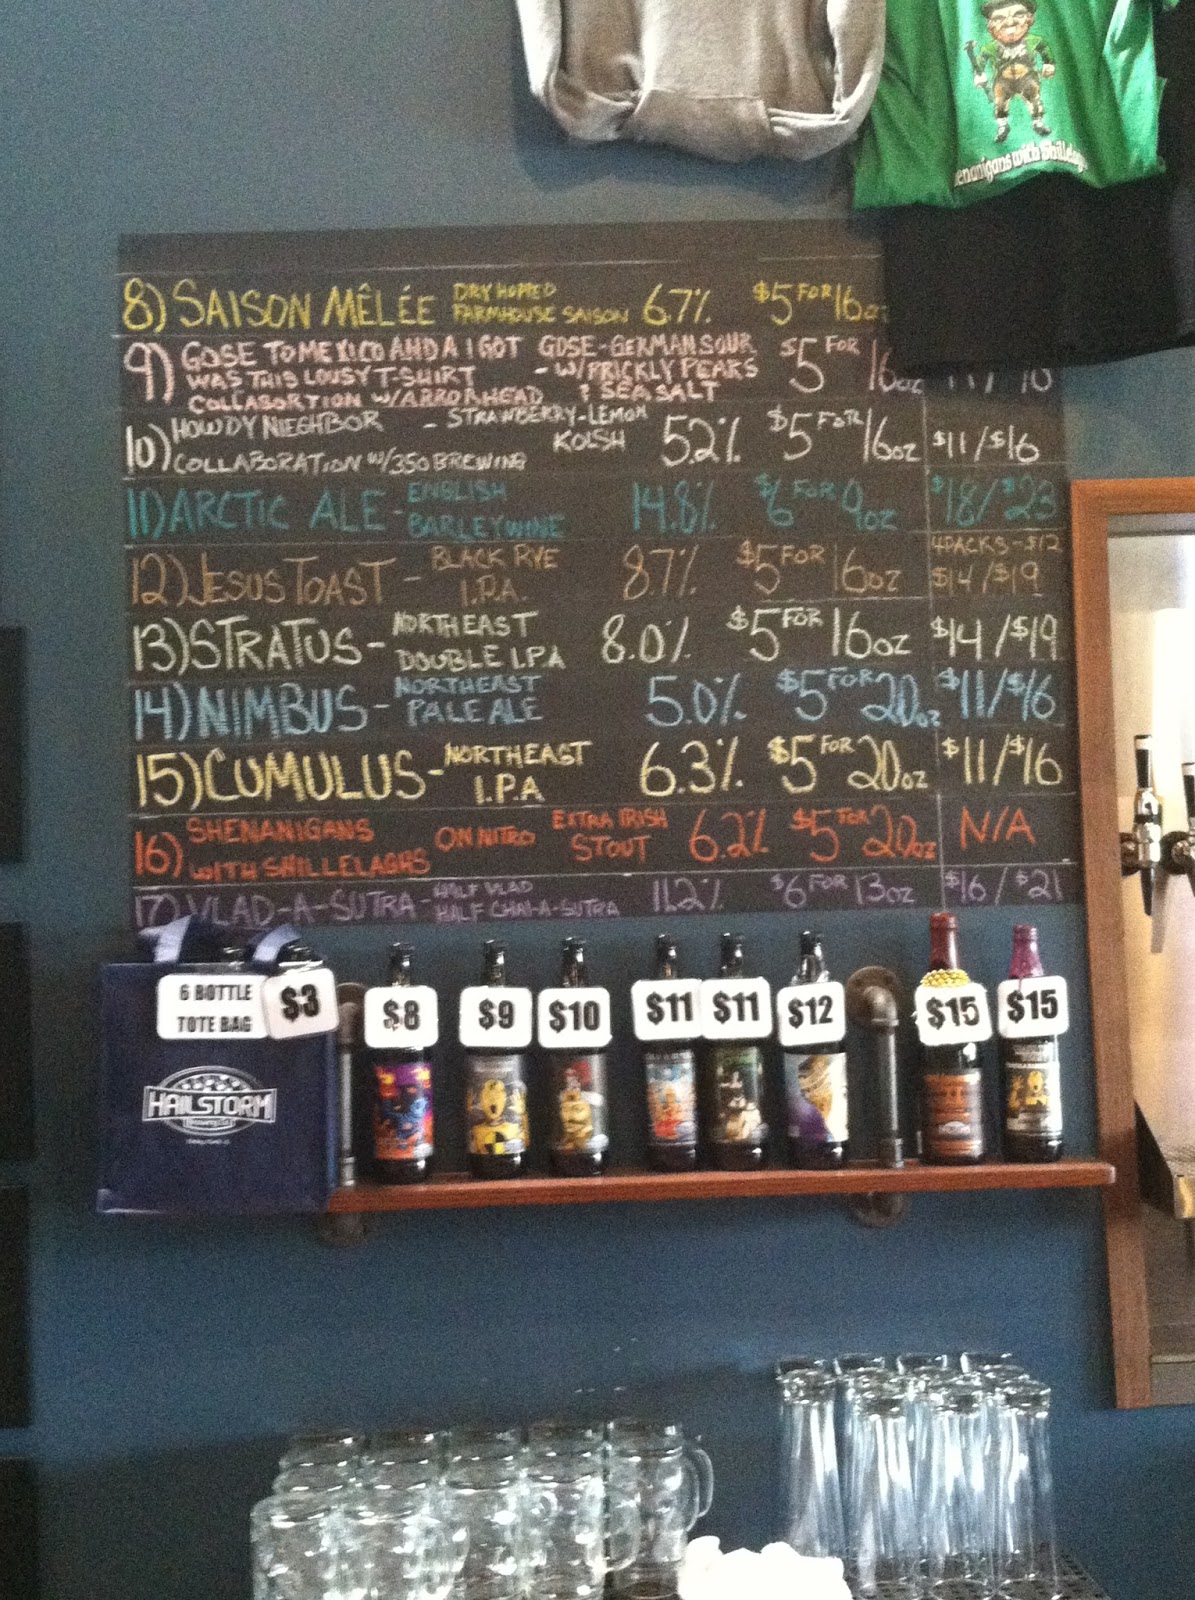 Shenanigans with Shillelag
8) SAISON MÊLÉE DRY HOPPED FARMHOUSE SAISON 6.7% $5 FOR 16oz
9) GOSE TO MEXICO AND A I GOT GOSE-GERMAN SOUR $5 FOR 16oz 11/16
WAS THIS LOUSY T-SHIRT - W/PRICKLY PEARS
COLLABORTION W/ARROWHEAD & SEA SALT
10) HOWDY NIEGHBOR - STRAWBERRY-LEMON KOLSH 5.2% $5 FOR 16oz $11/$16
COLLABORATION W/350 BREWING
11) ARCTIC ALE - ENGLISH BARLEYWINE 14.8% $6 FOR 9oz $18/$23
12) JESUS TOAST - BLACK RYE I.P.A. 8.7% $5 FOR 16oz 4PACKS-$12 $14/$19
13) STRATUS - NORTHEAST DOUBLE I.P.A 8.0% $5 FOR 16oz $14/$19
14) NIMBUS - NORTHEAST PALE ALE 5.0% $5 FOR 20oz $11/$16
15) CUMULUS - NORTHEAST I.P.A 6.3% $5 FOR 20oz $11/$16
16) SHENANIGANS WITH SHILLELAGHS ON NITRO EXTRA IRISH STOUT 6.2% $5 FOR 20oz N/A
17) VLAD-A-SUTRA - HALF VLAD HALF CHAI-A-SUTRA 11.2% $6 FOR 13oz $16/$21
6 BOTTLE
TOTE BAG
$3
$8
$9
$10
$11
$11
$12
$15
$15
HAILSTORM
Brewing Co.